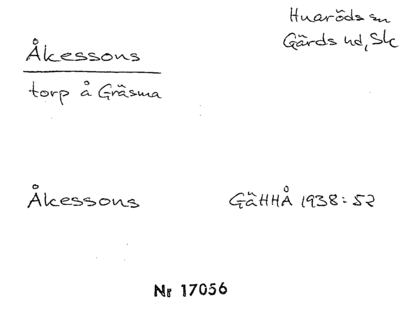 Åkessons
torp å Gräsma
Huaröds sn
Gärds hd, Sk
Åkessons
GäHHÅ 1938:52
Nr 17056